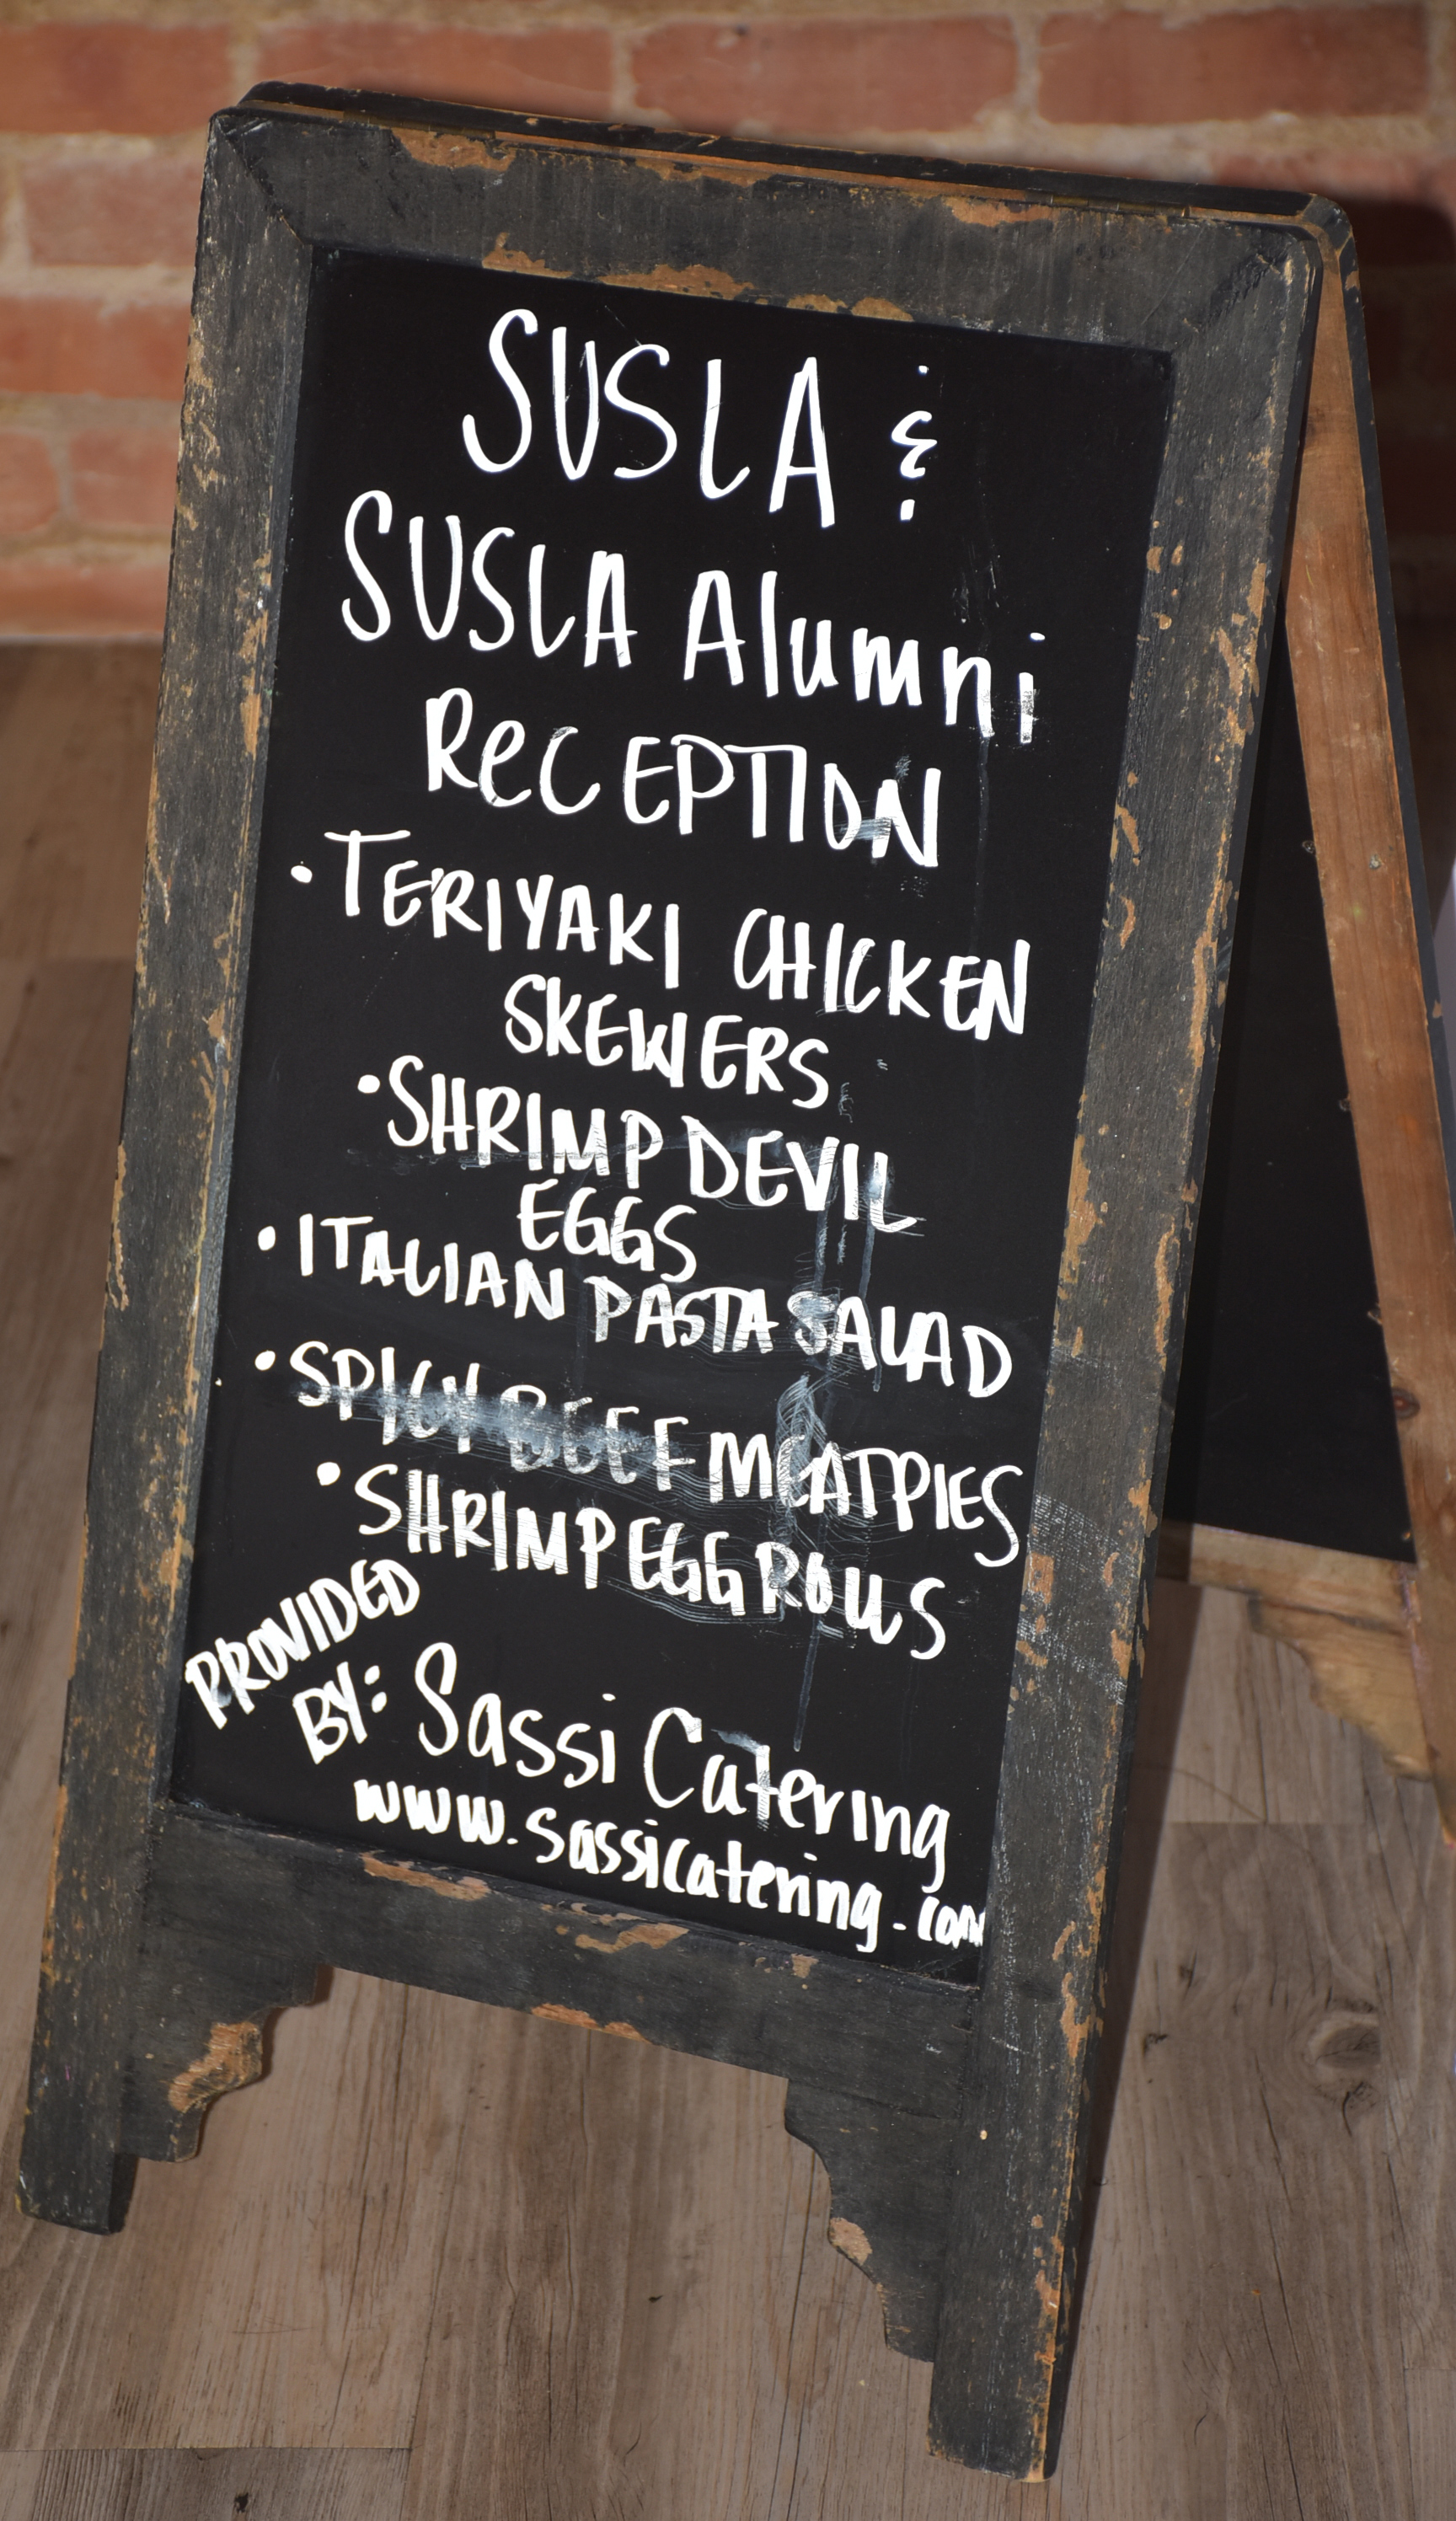 SUSLA &
SUSLA Alumni
RECEPTION
• TERIYAKI CHICKEN
SKEWERS
• SHRIMP DEVIL
EGGS
• ITALIAN PASTA SALAD
• SPICY BEEF MEATPIES
• SHRIMP EGG ROLLS
PROVIDED
BY: Sassi Catering
www.sassicatering.com